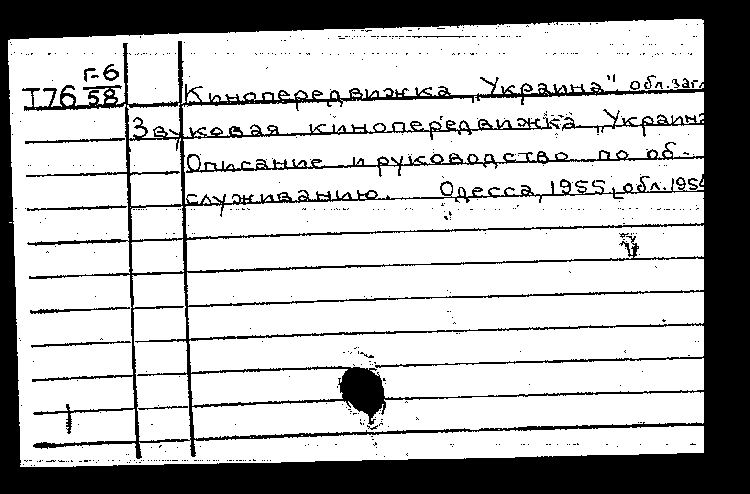 Г-6
I76 58
Кинопередвижка „Украина". обл.загл
Звуковая кинопередвижка „Украина
Описание и руководство по об-
служиванию. Одесса, 1955, обл.1954